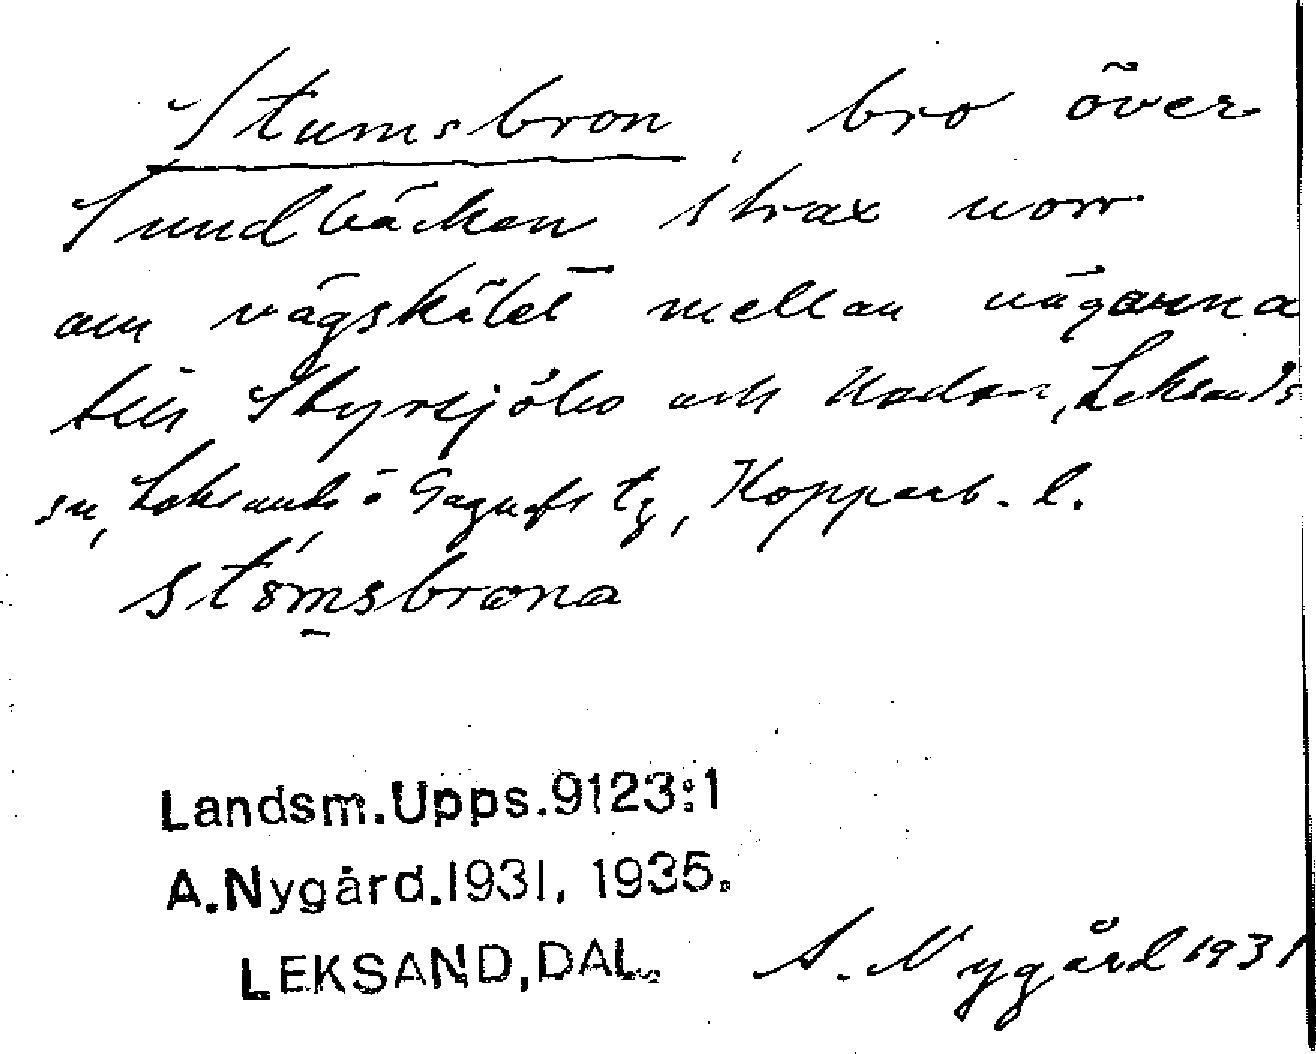 Stumsbron, bro över
Sundbäcken strax norr
om vägskälet mellan vägarna
till Styrsjöbo och Hedan, Leksands
sn, Leksands o Gagnefs tg, Kopparb. l.
stömsbrona
Landsm.Upps.9123:1
A.Nygård.1931, 1935.
LEKSAND, DAL.
A. Nygård 1931